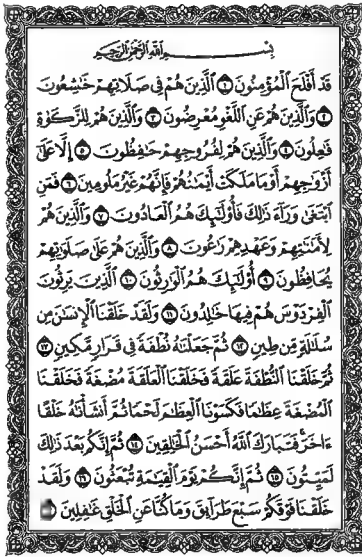 بِسْمِ اللَّهِ الرَّحْمَٰنِ الرَّحِيمِ
قَدْ أَفْلَحَ الْمُؤْمِنُونَ ١ الَّذِينَ هُمْ فِي صَلَاتِهِمْ خَاشِعُونَ
٢ وَالَّذِينَ هُمْ عَنِ اللَّغْوِ مُعْرِضُونَ ٣ وَالَّذِينَ هُمْ لِلزَّكَوٰةِ
فَاعِلُونَ ٤ وَالَّذِينَ هُمْ لِفُرُوجِهِمْ حَافِظُونَ ٥ إِلَّا عَلَىٰ
أَزْوَاجِهِمْ أَوْ مَا مَلَكَتْ أَيْمَانُهُمْ فَإِنَّهُمْ غَيْرُ مَلُومِينَ ٦ فَمَنِ
ابْتَغَىٰ وَرَآءَ ذَٰلِكَ فَأُولَٰئِكَ هُمُ الْعَادُونَ ٧ وَالَّذِينَ هُمْ
لِأَمَانَاتِهِمْ وَعَهْدِهِمْ رَاعُونَ ٨ وَالَّذِينَ هُمْ عَلَىٰ صَلَوَاتِهِمْ
يُحَافِظُونَ ٩ أُولَٰئِكَ هُمُ الْوَارِثُونَ ١٠ الَّذِينَ يَرِثُونَ
الْفِرْدَوْسَ هُمْ فِيهَا خَالِدُونَ ١١ وَلَقَدْ خَلَقْنَا الْإِنسَانَ مِن
سُلَالَةٍ مِّن طِينٍ ١٢ ثُمَّ جَعَلْنَاهُ نُطْفَةً فِي قَرَارٍ مَّكِينٍ ١٣
ثُمَّ خَلَقْنَا النُّطْفَةَ عَلَقَةً فَخَلَقْنَا الْعَلَقَةَ مُضْغَةً فَخَلَقْنَا
الْمُضْغَةَ عِظَامًا فَكَسَوْنَا الْعِظَامَ لَحْمًا ثُمَّ أَنشَأْنَاهُ خَلْقًا
ءَاخَرَ فَتَبَارَكَ اللَّهُ أَحْسَنُ الْخَالِقِينَ ١٤ ثُمَّ إِنَّكُم بَعْدَ ذَٰلِكَ
لَمَيِّتُونَ ١٥ ثُمَّ إِنَّكُمْ يَوْمَ الْقِيَامَةِ تُبْعَثُونَ ١٦ وَلَقَدْ
خَلَقْنَا فَوْقَكُمْ سَبْعَ طَرَآئِقَ وَمَا كُنَّا عَنِ الْخَلْقِ غَافِلِينَ